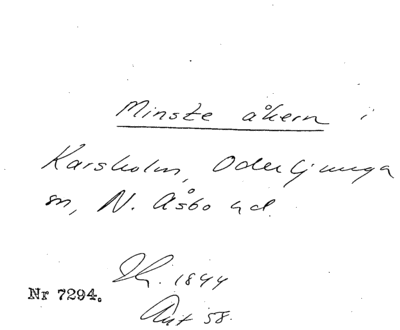 Minste åkern i
Karsholm, Oderljunga
sn, N. Åsbo hd.
1844
Nr 7294.
58.